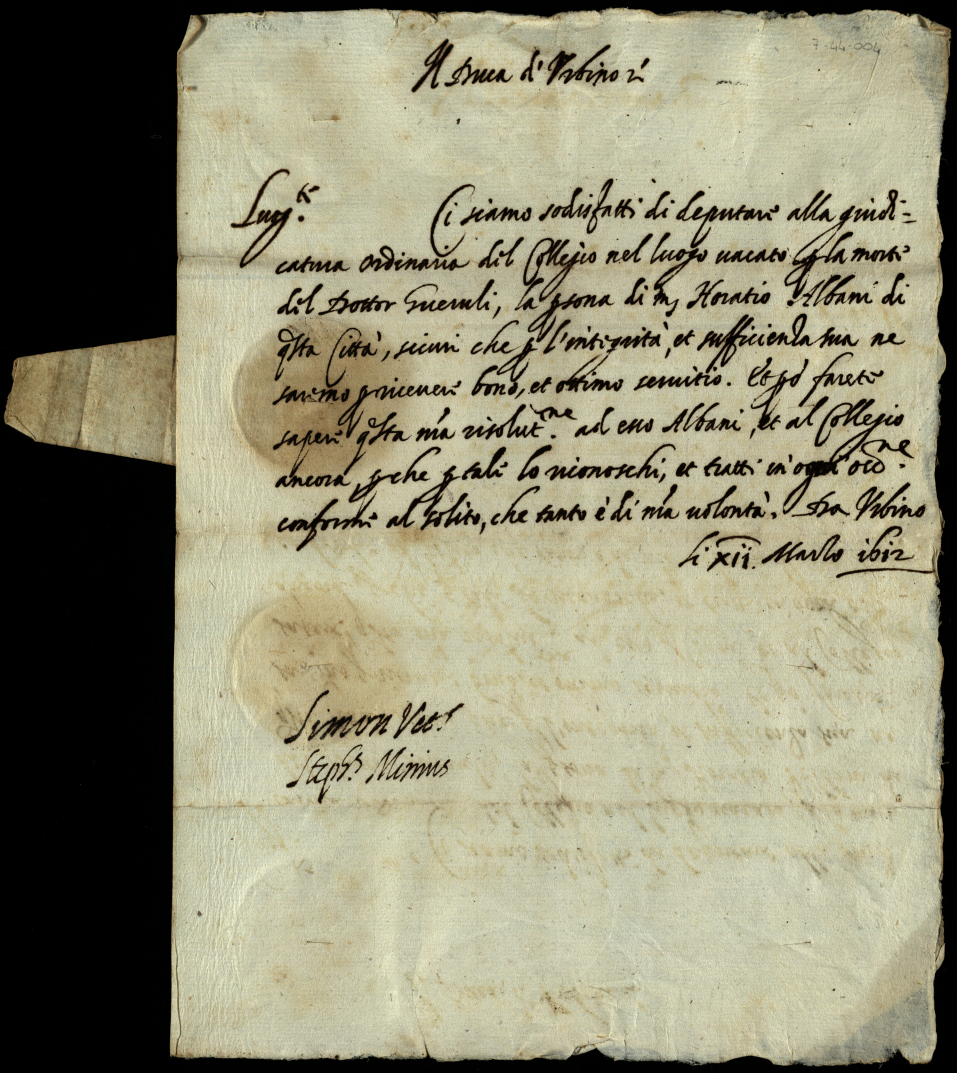 7-44-004
Il Duca d' Urbino
Luog.te Ci siamo sodisfatti di deputare alla giudi=
catura ordinaria del Collegio nel luogo vacato p la morte
del Dottor Gueruli, la psona di m, Horatio Albani di
qsta Città, sicuri che p l'integrità, et sufficienza sua ne
saremo p ricevere bono, et ottimo servitio. Et pò farete
sapere qsta nra risolut.ne ad esso Albani, et al Collegio
ancora, p che p tale lo riconoschi, et tratti in ogni occ.ne
conforme al solito, che tanto è di nra volontà. Da Urbino
li xii. Marzo 1612
Simon Vet.s
Steph.s Minius